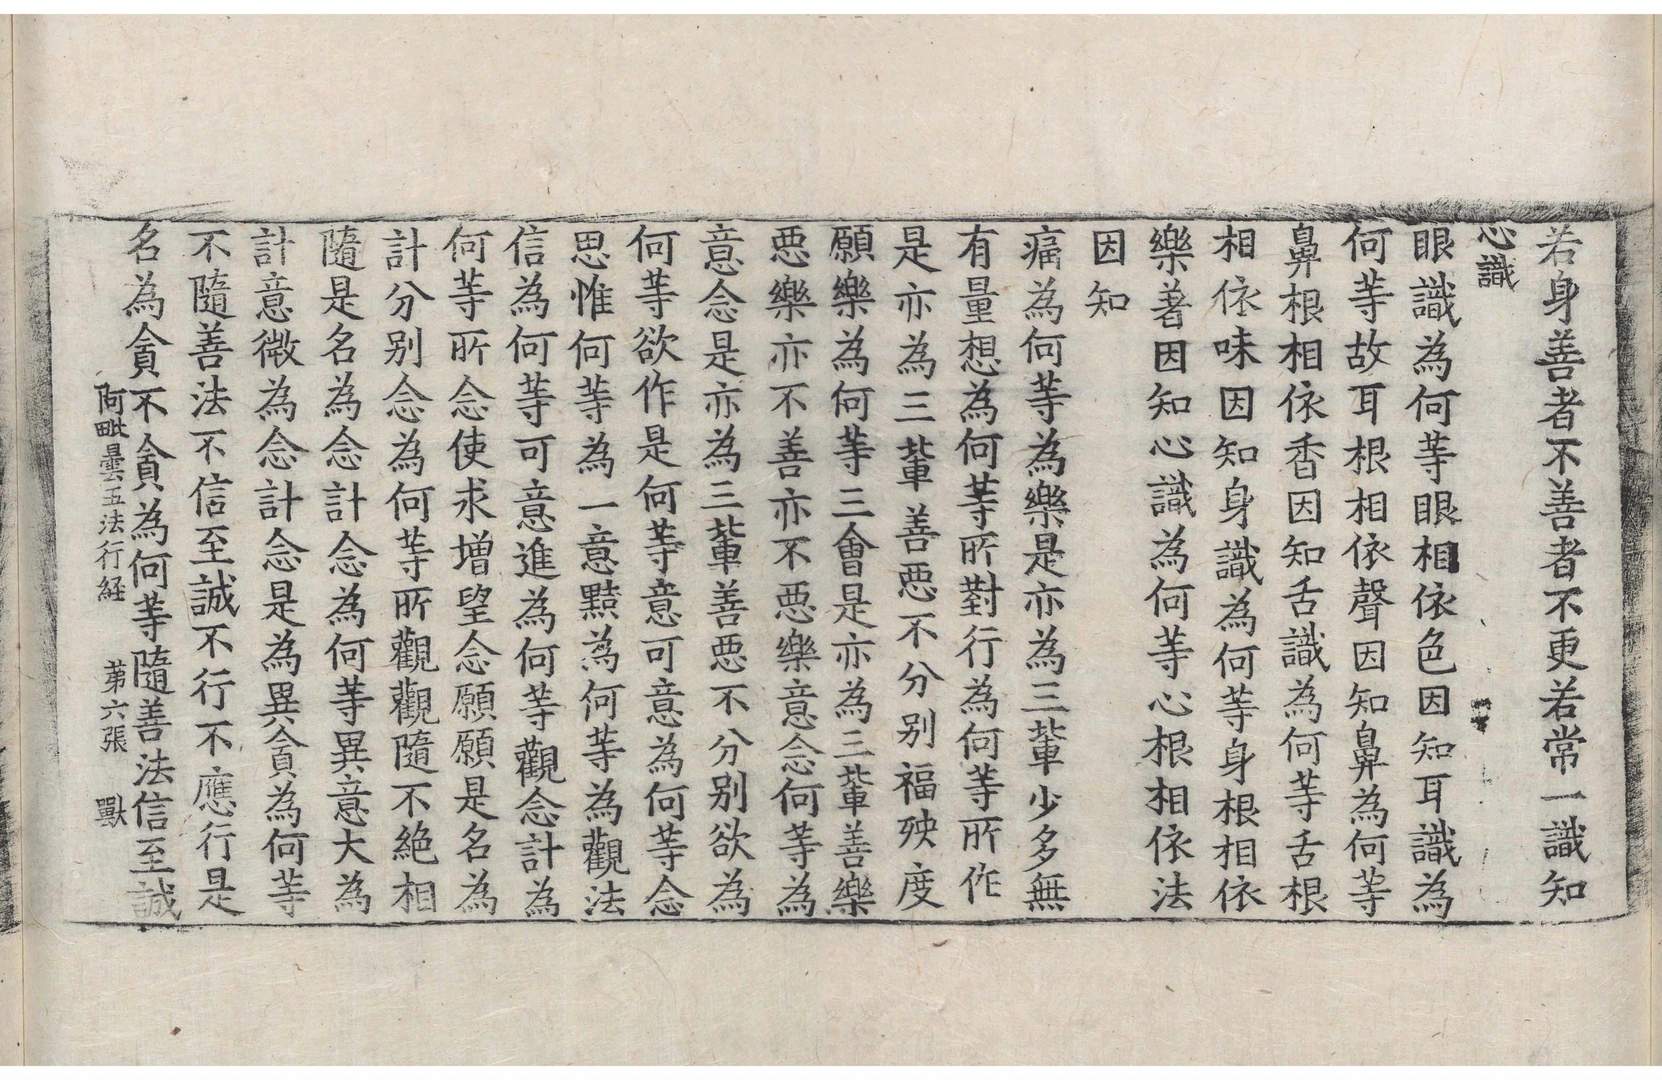 若身善者不善者不更若常一識知
心識
眼識為何等眼相依色因知耳識為
何等故耳根相依聲因知鼻為何等
鼻根相依香因知舌識為何等舌根
相依味因知身識為何等身根相依
樂著因知心識為何等心根相依法
因知
痛為何等為樂是亦為三輩少多無
有量想為何等所對行為何等所作
是亦為三輩善惡不分别福殃度
願樂為何等三會是亦為三輩善樂
惡樂亦不善亦不惡樂意念何等為
意念是亦為三輩善惡不分别欲為
何等欲作是何等意可意為何等念
思惟何等為一意黠為何等為觀法
信為何等可意進為何等觀念計為
何等所念使求增望念願願是名為
計分别念為何等所觀觀隨不絶相
隨是名為念計念為何等異意大為
計意微為念計念是為異貪為何等
不隨善法不信至誠不行不應行是
名為貪不貪為何等隨善法信至誠
阿毗曇五法行経 第六張 獸